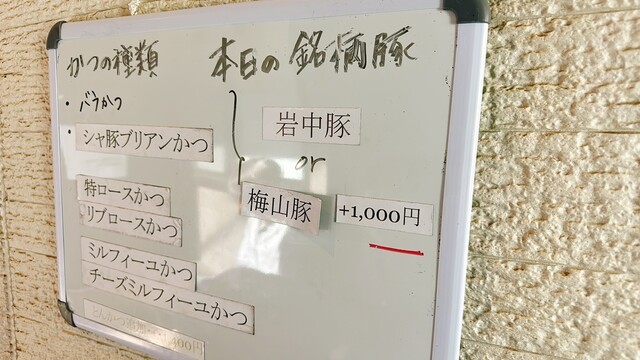 かつの種類
・バラかつ
・シャ豚ブリアンかつ
特ロースかつ
リブロースかつ
ミルフィーユかつ
チーズミルフィーユかつ
本日の銘柄豚
岩中豚
or
梅山豚 +1,000円